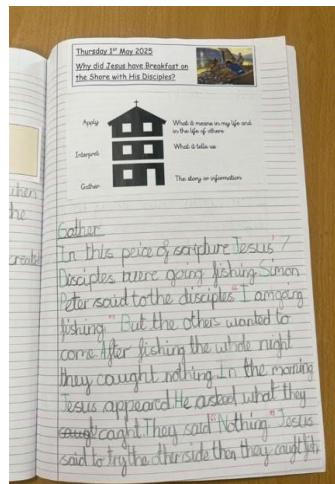 Thursday 1st May 2025
Why did Jesus have Breakfast on
the Shore with His Disciples?
Apply
What it means in my life and
in the life of others
Interpret
What it tells us
Gather
The story or information
Gather
In this peice of scripture Jesus' 7
Disciples were going fishing. Simon
Peter said to the disciples "I am going
fishing." But the others wanted to
come. After fishing the whole night
they caught nothing. In the morning
Jesus appeared. He asked what they
caught. They said "Nothing." Jesus
said to try the other side then they caught
when
he